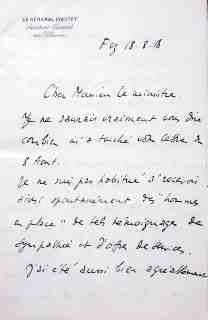 LE GÉNÉRAL
Fez 18.8.18
Cher Monsieur le ministre
Je ne saurais vraiment vous dire
combien m'a touché votre lettre du
8 Aout.
Je ne suis pas habitué à recevoir
ainsi spontanément des "hommes
en place" de tels témoignages de
sympathie et d'offre de services.
J'ai été aussi bien agréablement